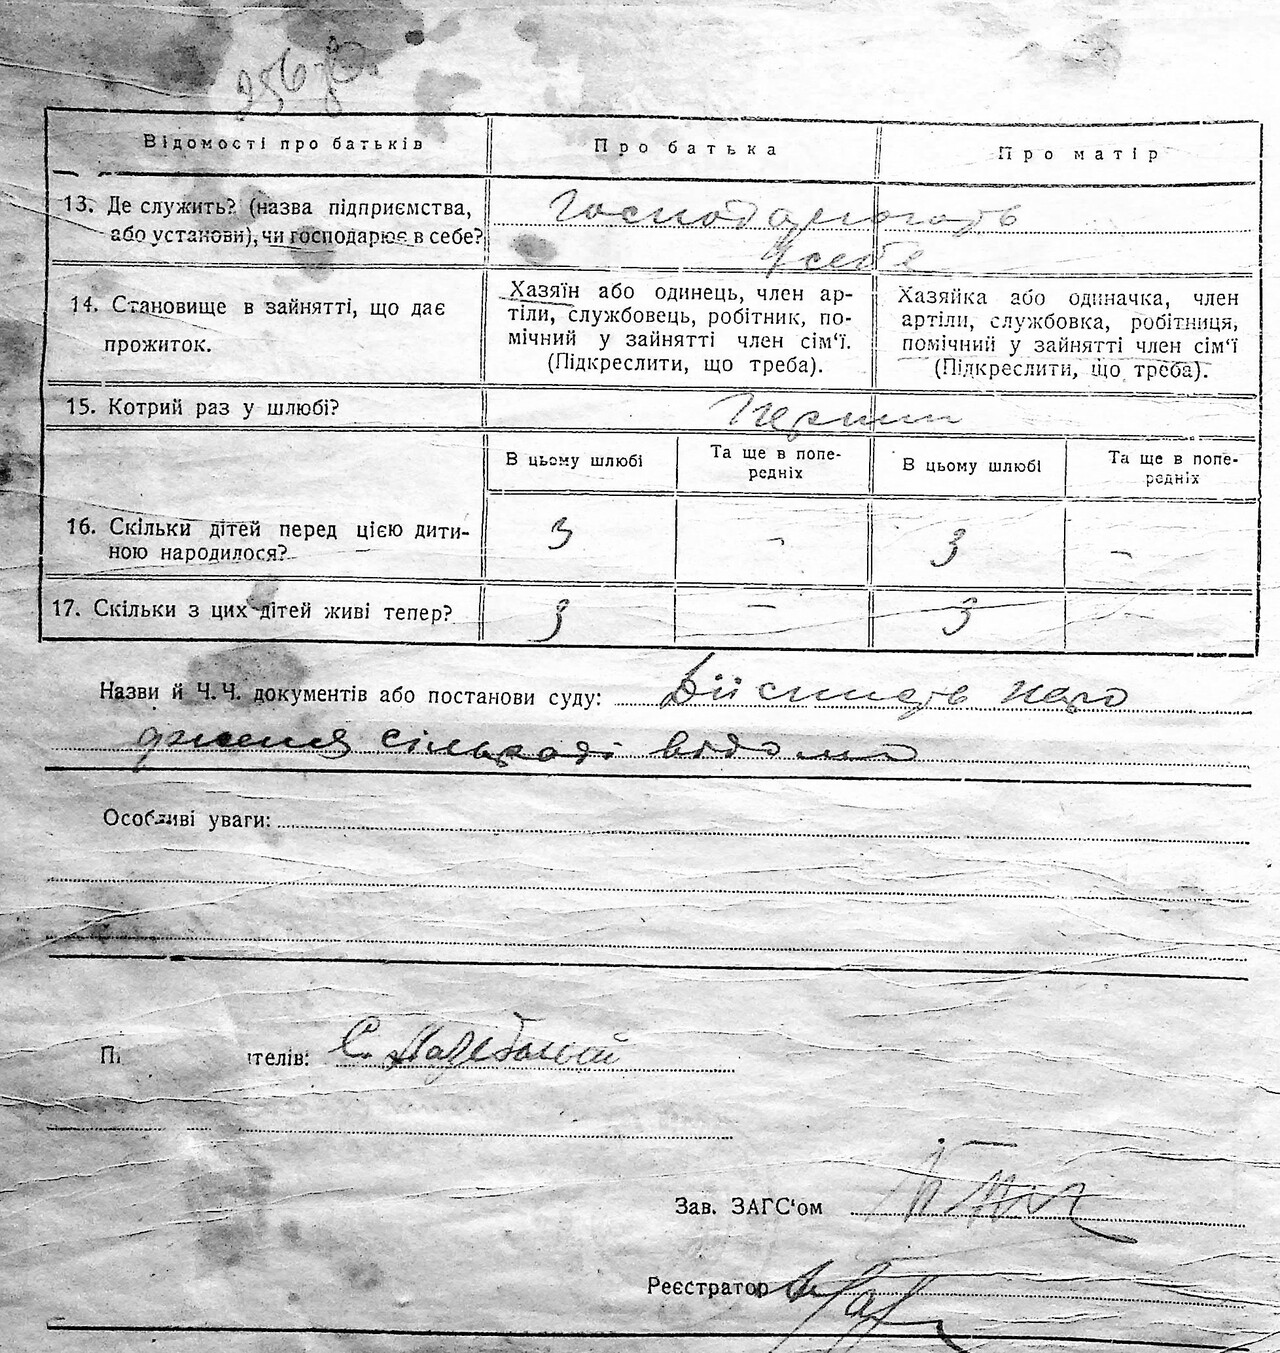 256 зв.
Відомості про батьків
Про батька
Про матір
13. Де служить? (назва підприємства,
або установи), чи господарює в себе?
Господарюють
у себе
14. Становище в зайнятті, що дає
прожиток.
Хазяїн або одинець, член ар-
тіли, службовець, робітник, по-
мічний у зайнятті член сім‘ї.
(Підкреслити, що треба).
Хазяйка або одиначка, член
артіли, службовка, робітниця,
помічний у зайнятті член сім‘ї
(Підкреслити, що треба).
15. Котрий раз у шлюбі?
Перший
В цьому шлюбі
Та ще в попе-
редніх
В цьому шлюбі
Та ще в попе-
редніх
16. Скільки дітей перед цією дити-
ною народилося?
3
-
3
-
17. Скільки з цих дітей живі тепер?
3
-
3
Назви й Ч.Ч. документів або постанови суду: Дійсність наро
дження сільраді відома
Особливі уваги:
Пі ителів: С.
Зав. ЗАГС‘ом
Реєстратор